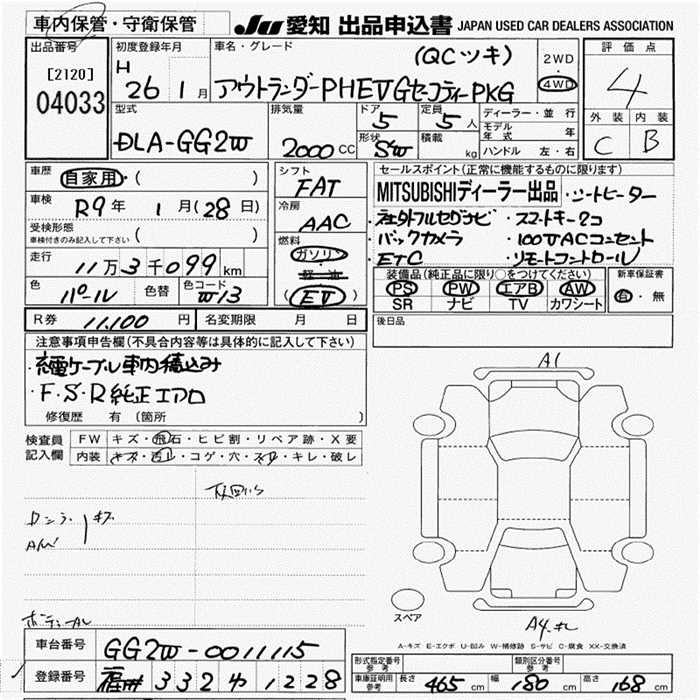 車内保管・守衛保管
JU 愛知 出品申込書 JAPAN USED CAR DEALERS ASSOCIATION
出品番号
[2120]
04033
初度登録年月
H 26 1月
車名・グレード
(QCツキ)
アウトランダーPHEV Gセーフティー PKG
2WD
4WD
評価点
4
外装 内装
C B
型式
DLA-GG2W
排気量
2000 CC
ドア
5
形状
SW
定員
5人
積載
kg
ディーラー・並行
モデル年式 年
ハンドル 左・右
車歴
自家用・( )
車検
R9年 1月(28日)
受検形態
車検付きのみ記入して下さい ( )
走行
11万3千099km
色
パール
色替
色コード
W13
シフト
FAT
冷房
AAC
燃料
ガソリン
軽油
(EV)
セールスポイント(正常に機能するものに限ります)
MITSUBISHIディーラー出品・シートヒーター
・社外フルセグナビ ・スマートキー2コ
・バックカメラ ・100VACコンセント
・ETC ・リモートコントロール
装備品(純正品に限り○をつけてください)
PS PW エアB AW
SR ナビ TV カワシート
新車保証書
有・無
R券 11,100円
名変期限 月 日
後日品
注意事項申告欄(不具合内容等は具体的に記入して下さい)
・充電ケーブル車内積込み
・F・S・R純正エアロ
修復歴 有(箇所 )
検査員
記入欄
FW キズ・飛石・ヒビ割・リペア跡・X要
内装 キズ・汚レ・コゲ・穴・スレ・キレ・破レ
キズ
A1
スペア
A4
A-キズ E-エクボ U-凹み W-補修跡 S-サビ C-腐食 XX-交換済
車台番号 GG2W-0011115
登録番号 332 1228
形式指定番号
参考
類別区分番号
参考
車庫証明用
参考
長さ 465cm 幅 180cm 高さ 168cm